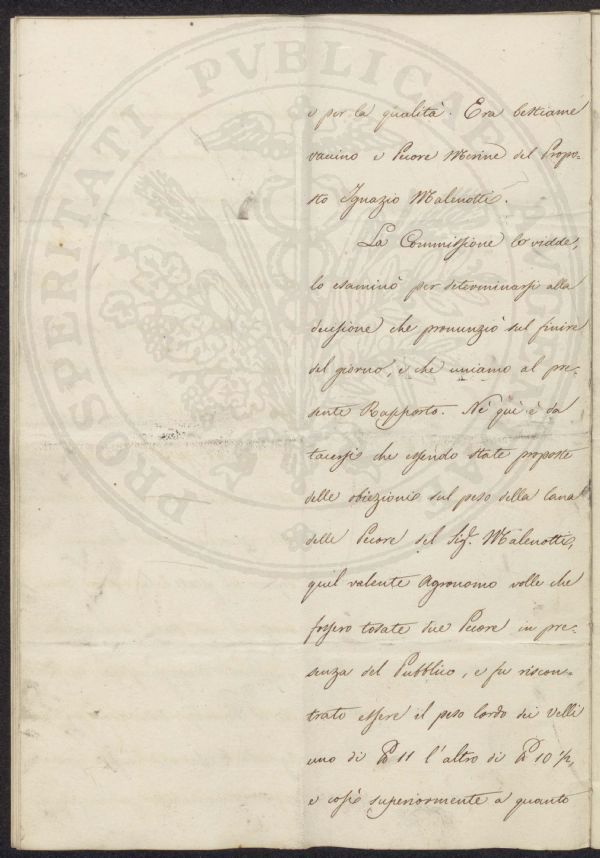 e per la qualità. Era bestiame
vaccino e Pecore Merine del Propo-
sto Ignazio Malenotti.
La Commissione lo vidde,
lo esaminò per determinarsi alla
decisione che pronunziò sul finire
del giorno, e che uniamo al pre-
sente Rapporto. Nè quì è da
tacersi che essendo state proposte
delle obiezioni sul peso della lana
delle Pecore del Sig. Malenotti,
quel valente Agronomo volle che
fossero tosate due Pecore in pre-
senza del Pubblico, e fu riscon-
trato essere il peso lordo dei Velli
uno di ℔ 11 l'altro di ℔ 10 1/2,
e così superiormente a quanto
PROSPERITATI PVBLICAE